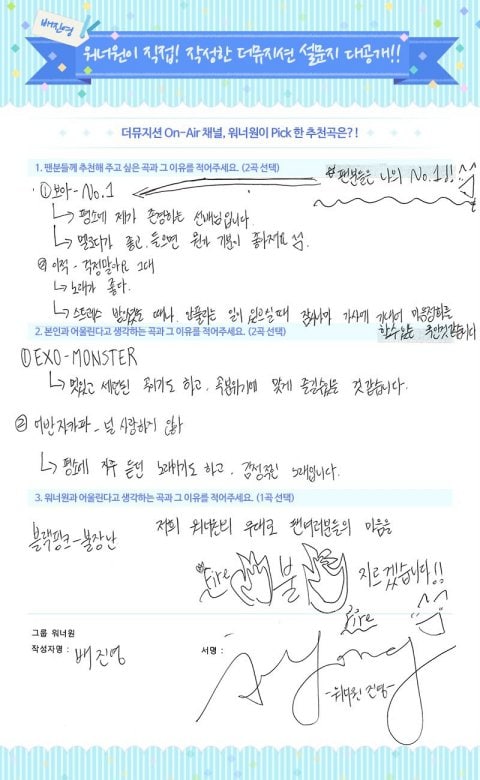 배진영
워너원이 직접! 작성한 더뮤지션 설문지 대공개!!
더뮤지션 On-Air 채널, 워너원이 Pick 한 추천곡은?!
1. 팬분들께 추천해 주고 싶은 곡과 그 이유를 적어주세요. (2곡 선택)
* 팬분들은 나의 No.1!!
① 보아 - No.1
↳ 평소에 제가 존경하는 선배님입니다.
↳ 멜로디가 좋고, 들으면 뭔가 기분이 좋아져요
② 이적 - 걱정말아요 그대
↳ 노래가 좋다.
↳ 스트레스 받았을 때나, 안풀리는 일이 있고 싶을때 잠시나마 가사에 마음정화를
할수있는 곡인것같습니다
2. 본인과 어울린다고 생각하는 곡과 그 이유를 적어주세요. (2곡 선택)
① EXO - MONSTER
↳ 멋있고 세련된 곡이기도 하고, 곡분위기에 맞게 즐길수있는 것 같습니다.
② 어반자카파 - 널 사랑하지 않아
↳ 평소에 자주 듣던 노래이기도 하고, 감정적인 노래입니다.
3. 워너원과 어울린다고 생각하는 곡과 그 이유를 적어주세요. (1곡 선택)
블랙핑크 - 불장난
저희 워너원의 무대로 팬여러분들의 마음을
"Fire 불 지르겠습니다!!
Fire
그룹 워너원
작성자명 : 배진영
서명 :
-워너원 진영-